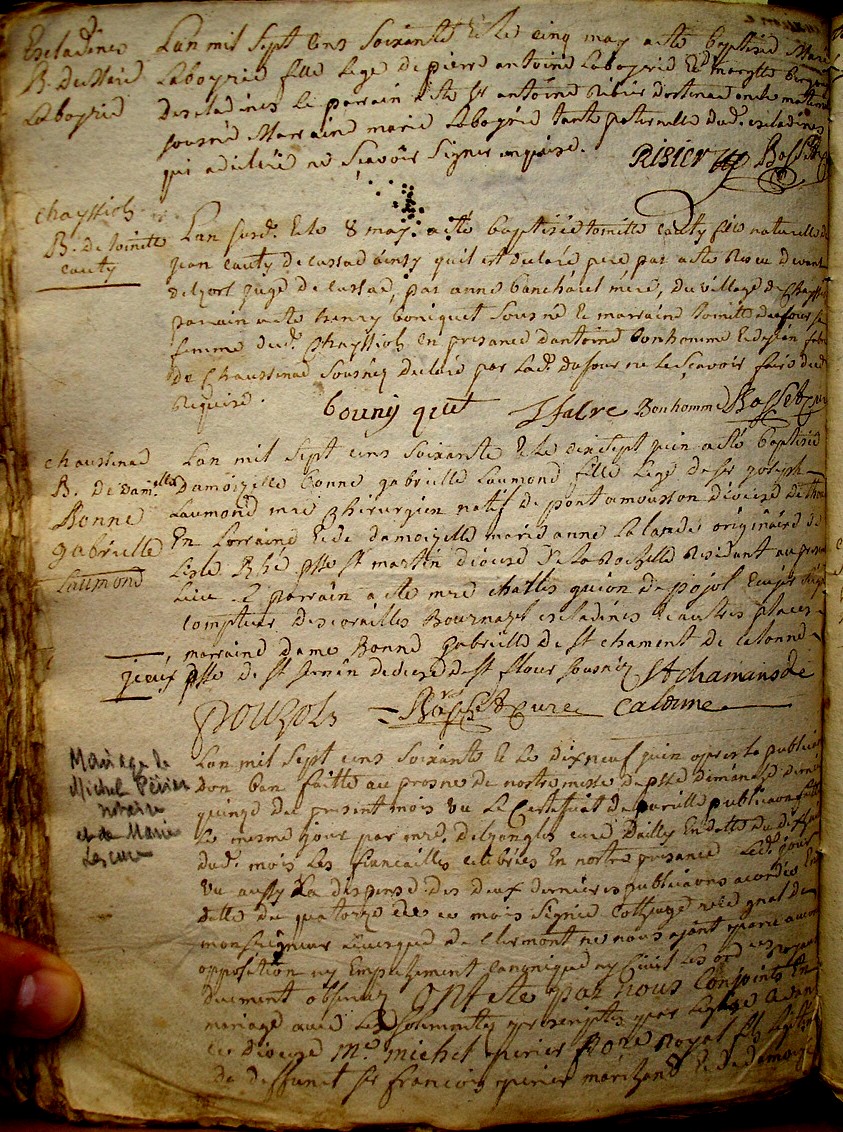 Escladines
B. de Marie
Laboyrie
Lan mil sept cens soixante & le cinq may a été baptisée Marie
Laboyrie fille lege de pierre antoine Laboyrie & de margtte
descladines le parrain a été sr antoine Ribier oncle maternel
sousné Marraine marie Laboyrie tante paternelle dud. escladines
qui a déclaré ne scavoir signer requise. RIBIER Basset
chayssiols
B. de toinette
cauty
Lan susd. & le 8 may a été baptisée toinette cauty fille naturelle de
jean cauty de cussac ainsy quil est declaré par acte Receu devant
delzort juge de cussac, par anne mere, du village de Chayssiol
parrain a été henry boniquet sousné & marraine toinette dufour sa
femme dud. Chayssiols en presance dantoine bonhomme & de jean fabre
de Chaussenac sousnez declaré par lad. dufour ne le scavoir faire de
Requise. bouniquet J falre Bonhomme Basset curé
chaussenac
B. de Damlle
Bonne
gabrielle
Laumond
Lan mil sept cens soixante & le dix sept juin a été baptisée
Damoizelle bonne gabrielle Laumond fille lege de sr joseph
Laumond mre chirurgien natif de pont amousson diocese de thoul
En Lorraine & de damoizelle marie anne Lalande originaire de
Lisle Rhé psse st martin diocese de La Rochelle Residant au present
Lieu le parrain a été mre challes guion de pojol Ecuyer
compteur descorailles Bournazel escladines & autres places
marraine dame Bonne gabrielle de st chament de calonne
psse de st diocese de st flour sousnez St chamans de
POUZOLS Basset curé calonne
Mariage de
Michel Périer
notaire
et de Marie
Lescure
Lan mil sept cens soixante & le dix neuf juin apres la publication
dun ban faitte au prosne de nostre messe de psse dimanche dernier
quinze du present mois vu le Certificat de pareille publication faitte
le mesme jour par mre. delzongles curé dailly En datte du
dud. mois les fiancailles celebrées En nostre presance led. jour
vu aussy La dispense des deux dernieres publications acordée En
datte du quatorze de ce mois signée vic gnal de
monseigneur Levesque de Clermont ne nous ayant paru aucune
opposition ny Empechement canonique ny Civil les ord
duement observez ont été par nous Conjoints En
mariage avec les solemnités prescriptes par Leglise dans
ce diocese Me michel perier Nore Royal fils legitime
de deffunct sr francois perier marchand & de damoizelle